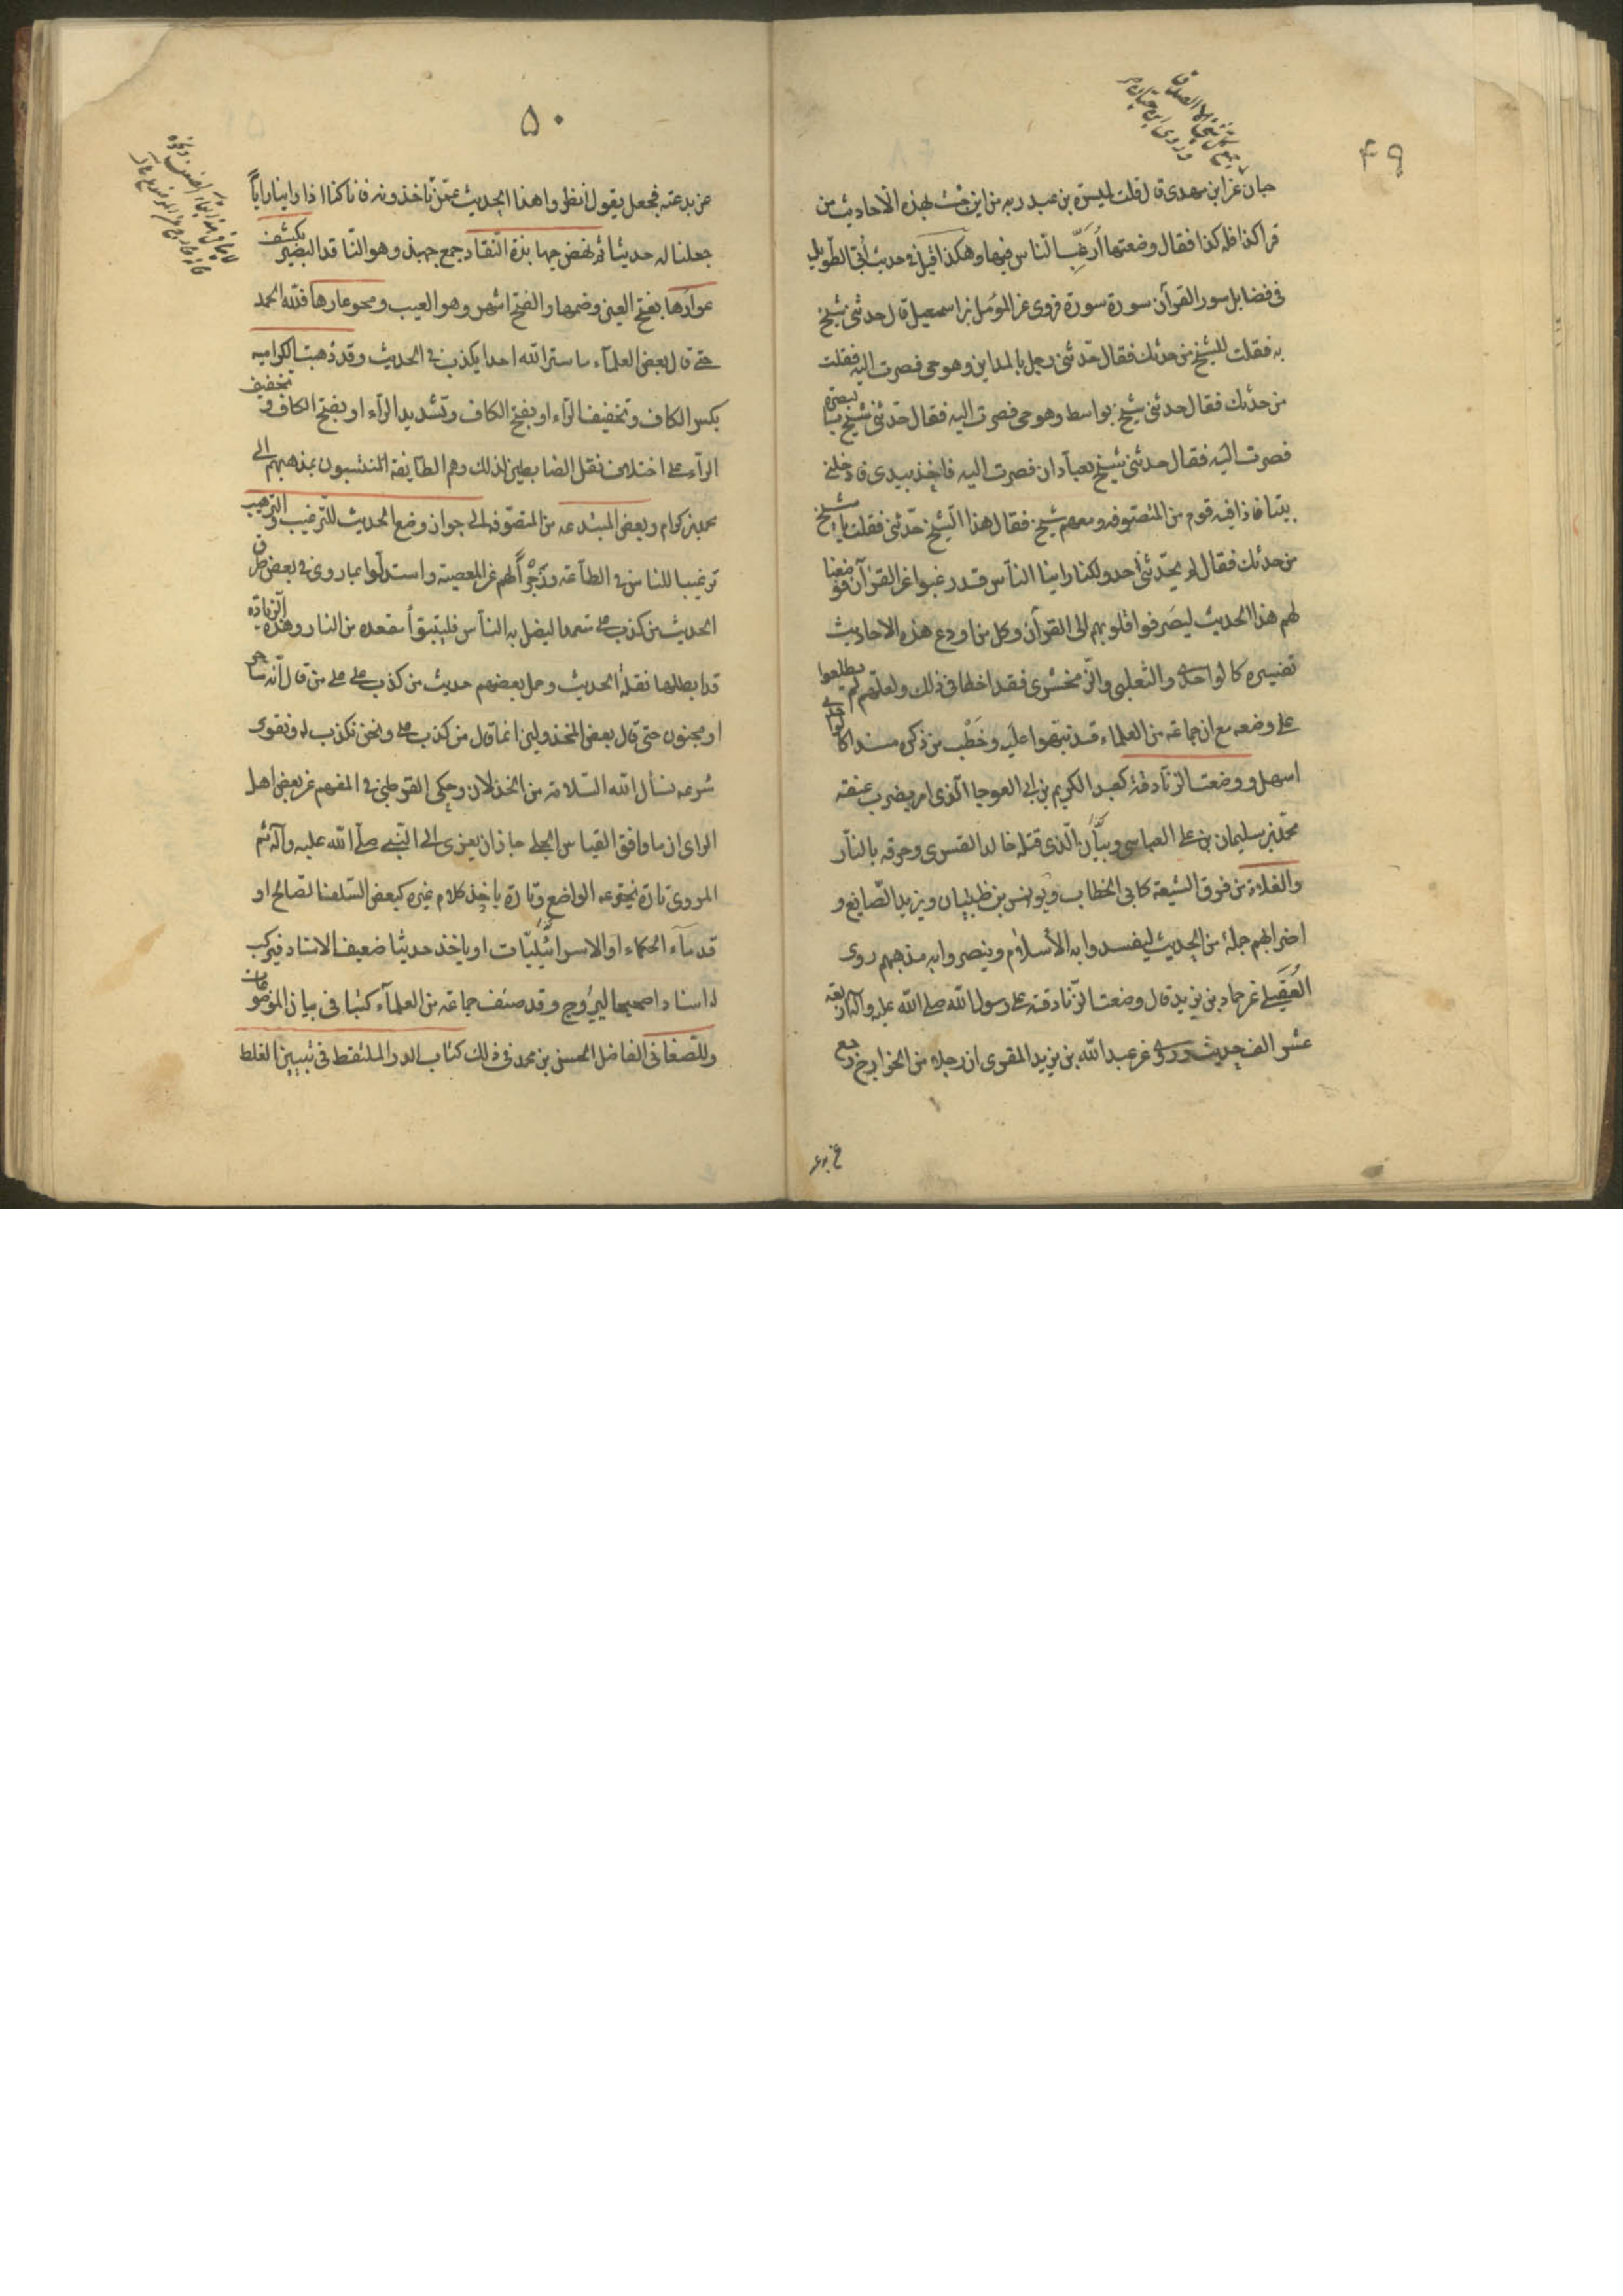 ۴۹
حبان عن ابن مهدی قال قلت لمیسرة بن عبد ربه من این جئت بهذه الاحادیث من
قرا کذا فله کذا فقال وضعتها اُرَغِّب النّاس فیها وهکذا قیل فی حدیث اُبیّ الطّویل
فی فضایل سور القرآن سورة سورة فروی عن المؤمل بن اسمعیل قال حدثنی شیخ
به فقلت للشیخ من حدثک فقال حدّثنی رجل بالمداین وهو حی فصرت الیه فقلت
من حدثک فقال حدثنی شیخ بواسط وهو حی فصرت الیه فقال حدّثنی شیخ بالبصرة
فصرت الیه فقال حدثنی شیخ بعبادان فصرت الیه فاخذ بیدی فادخلنی
بیتا فاذا فیه قوم من المتصوفه ومعهم شیخ فقال هذا الشیخ حدّثنی فقلت یا شیخ
من حدثک فقال لم یحدّثنی احد ولکنا راینا النّاس قد رغبوا عن القرآن فوضعنا
لهم هذا الحدیث لیصرفوا قلوبهم الی القرآن وکل من اودع هذه الاحادیث
تفسیره کالواحدی والثعلبی والزّمخشری فقد اخطا فی ذلک ولعلّهم لم یطلعوا
علی وضعه مع ان جماعة من العلماء قد نبّهوا علیه وخَطْب من ذکره مسندا کالواحدی
اسهل ووضعت الزّنادقة کعبد الکریم بن ابی العوجا الّذی امر بضرب عنقه
محمّد بن سلیمان بن علی العباسی وبیّان الّذی قتله خالد القسری وحرقه بالنّار
والغلاة من فرق الشیعة کابی الخطاب ویونس بن ظبیان ویزید الصّایغ و
اضرابهم جملة من الحدیث لیفسدوا به الأسلام وینصروا به مذهبهم روی
العُقَیلی عن حماد بن یزید قال وضعت الزّنادقة علی رسول الله صلی الله علیه وآله اربعة
عشر الف حدیث وروی عن عبد الله بن یزید المقری ان رجلا من الخوارج رجع
۵۰
عن بدعته فجعل یقول انظروا هذا الحدیث عمّن تاخذونه فانا کنا اذا راینا رایاً
جعلنا له حدیثا ثم نهض جهابذة النّقاد جمع جهبذ وهو النّاقد البصیر بکشف
عوارها بفتح العین وضمها والفتح اشهر وهو العیب ومحو عارها فلله الحمد
حتی قال بعض العلمآء ما ستر الله احدا یکذب فی الحدیث وقد ذهبت الکرامیه
بکسر الکاف وتخفیف الرّاء او بفتح الکاف وتشدید الرّاء او بفتح الکاف وتخفیف
الرآء علی اختلاف نقل الضابطین لذلک وهم الطایفة المنتسبون بمذهبهم الی
محمد بن کرام وبعض المبتدعه من المتصوّفه الی جواز وضع الحدیث للتّرغیب والترهیب
ترغیبا للناس فی الطّاعة وزَجْراً لهم عن المعصیة واستدلّوا بما روی فی بعض طرق
الحدیث من کذب علی متعمدا لیضل به النّاس فلیتبوّأ مقعده من النار وهذه الزیادة
قد ابطلها نقلة الحدیث وحمل بعضهم حدیث من کذب علی علی من قال انّه ساحر
او مجنون حتی قال بعض المخذولین انما قال من کذب علی ونحن نکذب له ونقوی
شرعه نسأل الله السّلامة من الخذلان وحکی القرطبی فی المفهم عن بعض اهل
الرای ان ما وافق القیاس الجلی جاز ان یعزی الی النّبی صلّی الله علیه وآله ثم
المروی تارة یخترعه الواضع وتارة یاخذ کلام غیره کبعض السّلف الصالح او
قدمآء الحکماء او الاسرائیلیّات او یاخذ حدیثا ضعیف الاسناد فیرکب
له اسنادا صحیحا لیروج وقد صنف جماعة من العلمآء کتبا فی بیان الموضوعات
وللصّغانی الفاضل الحسن بن محمد فی ذلک کتاب الدر الملتقط فی تبیین الغلط